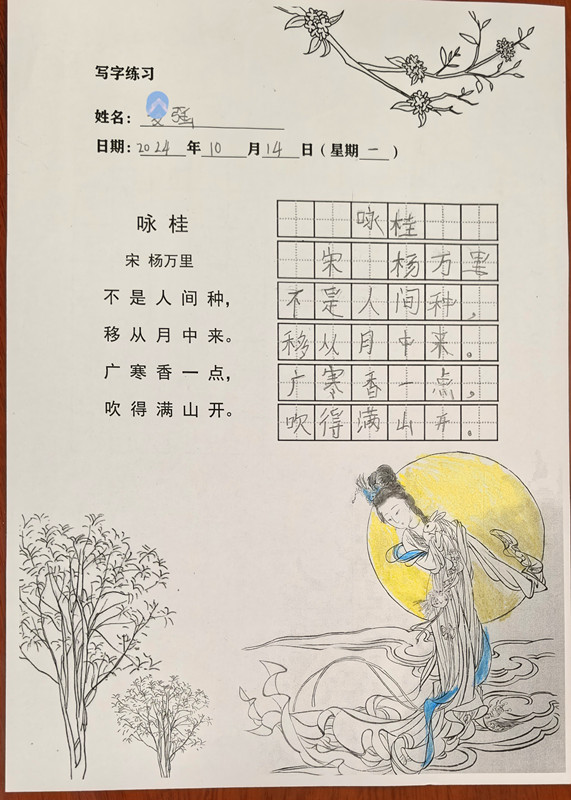 写字练习
姓名：强
日期：2024年10月14日（星期一）
咏桂
宋 杨万里
不是人间种，
移从月中来。
广寒香一点，
吹得满山开。
咏桂
宋 杨万里
不是人间种，
移从月中来。
广寒香一点，
吹得满山开。